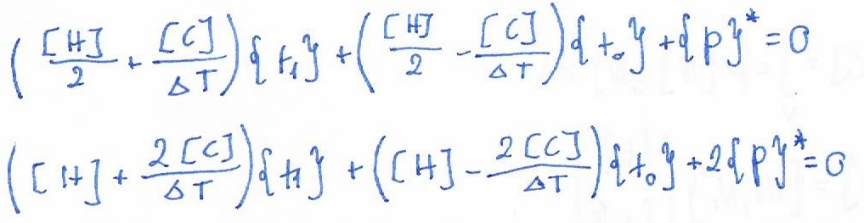 ([H]/2 + [C]/ΔT){t₁} + ([H]/2 - [C]/ΔT){t₀} + {p}* = 0
([H] + 2[C]/ΔT){t₁} + ([H] - 2[C]/ΔT){t₀} + 2{p}* = 0